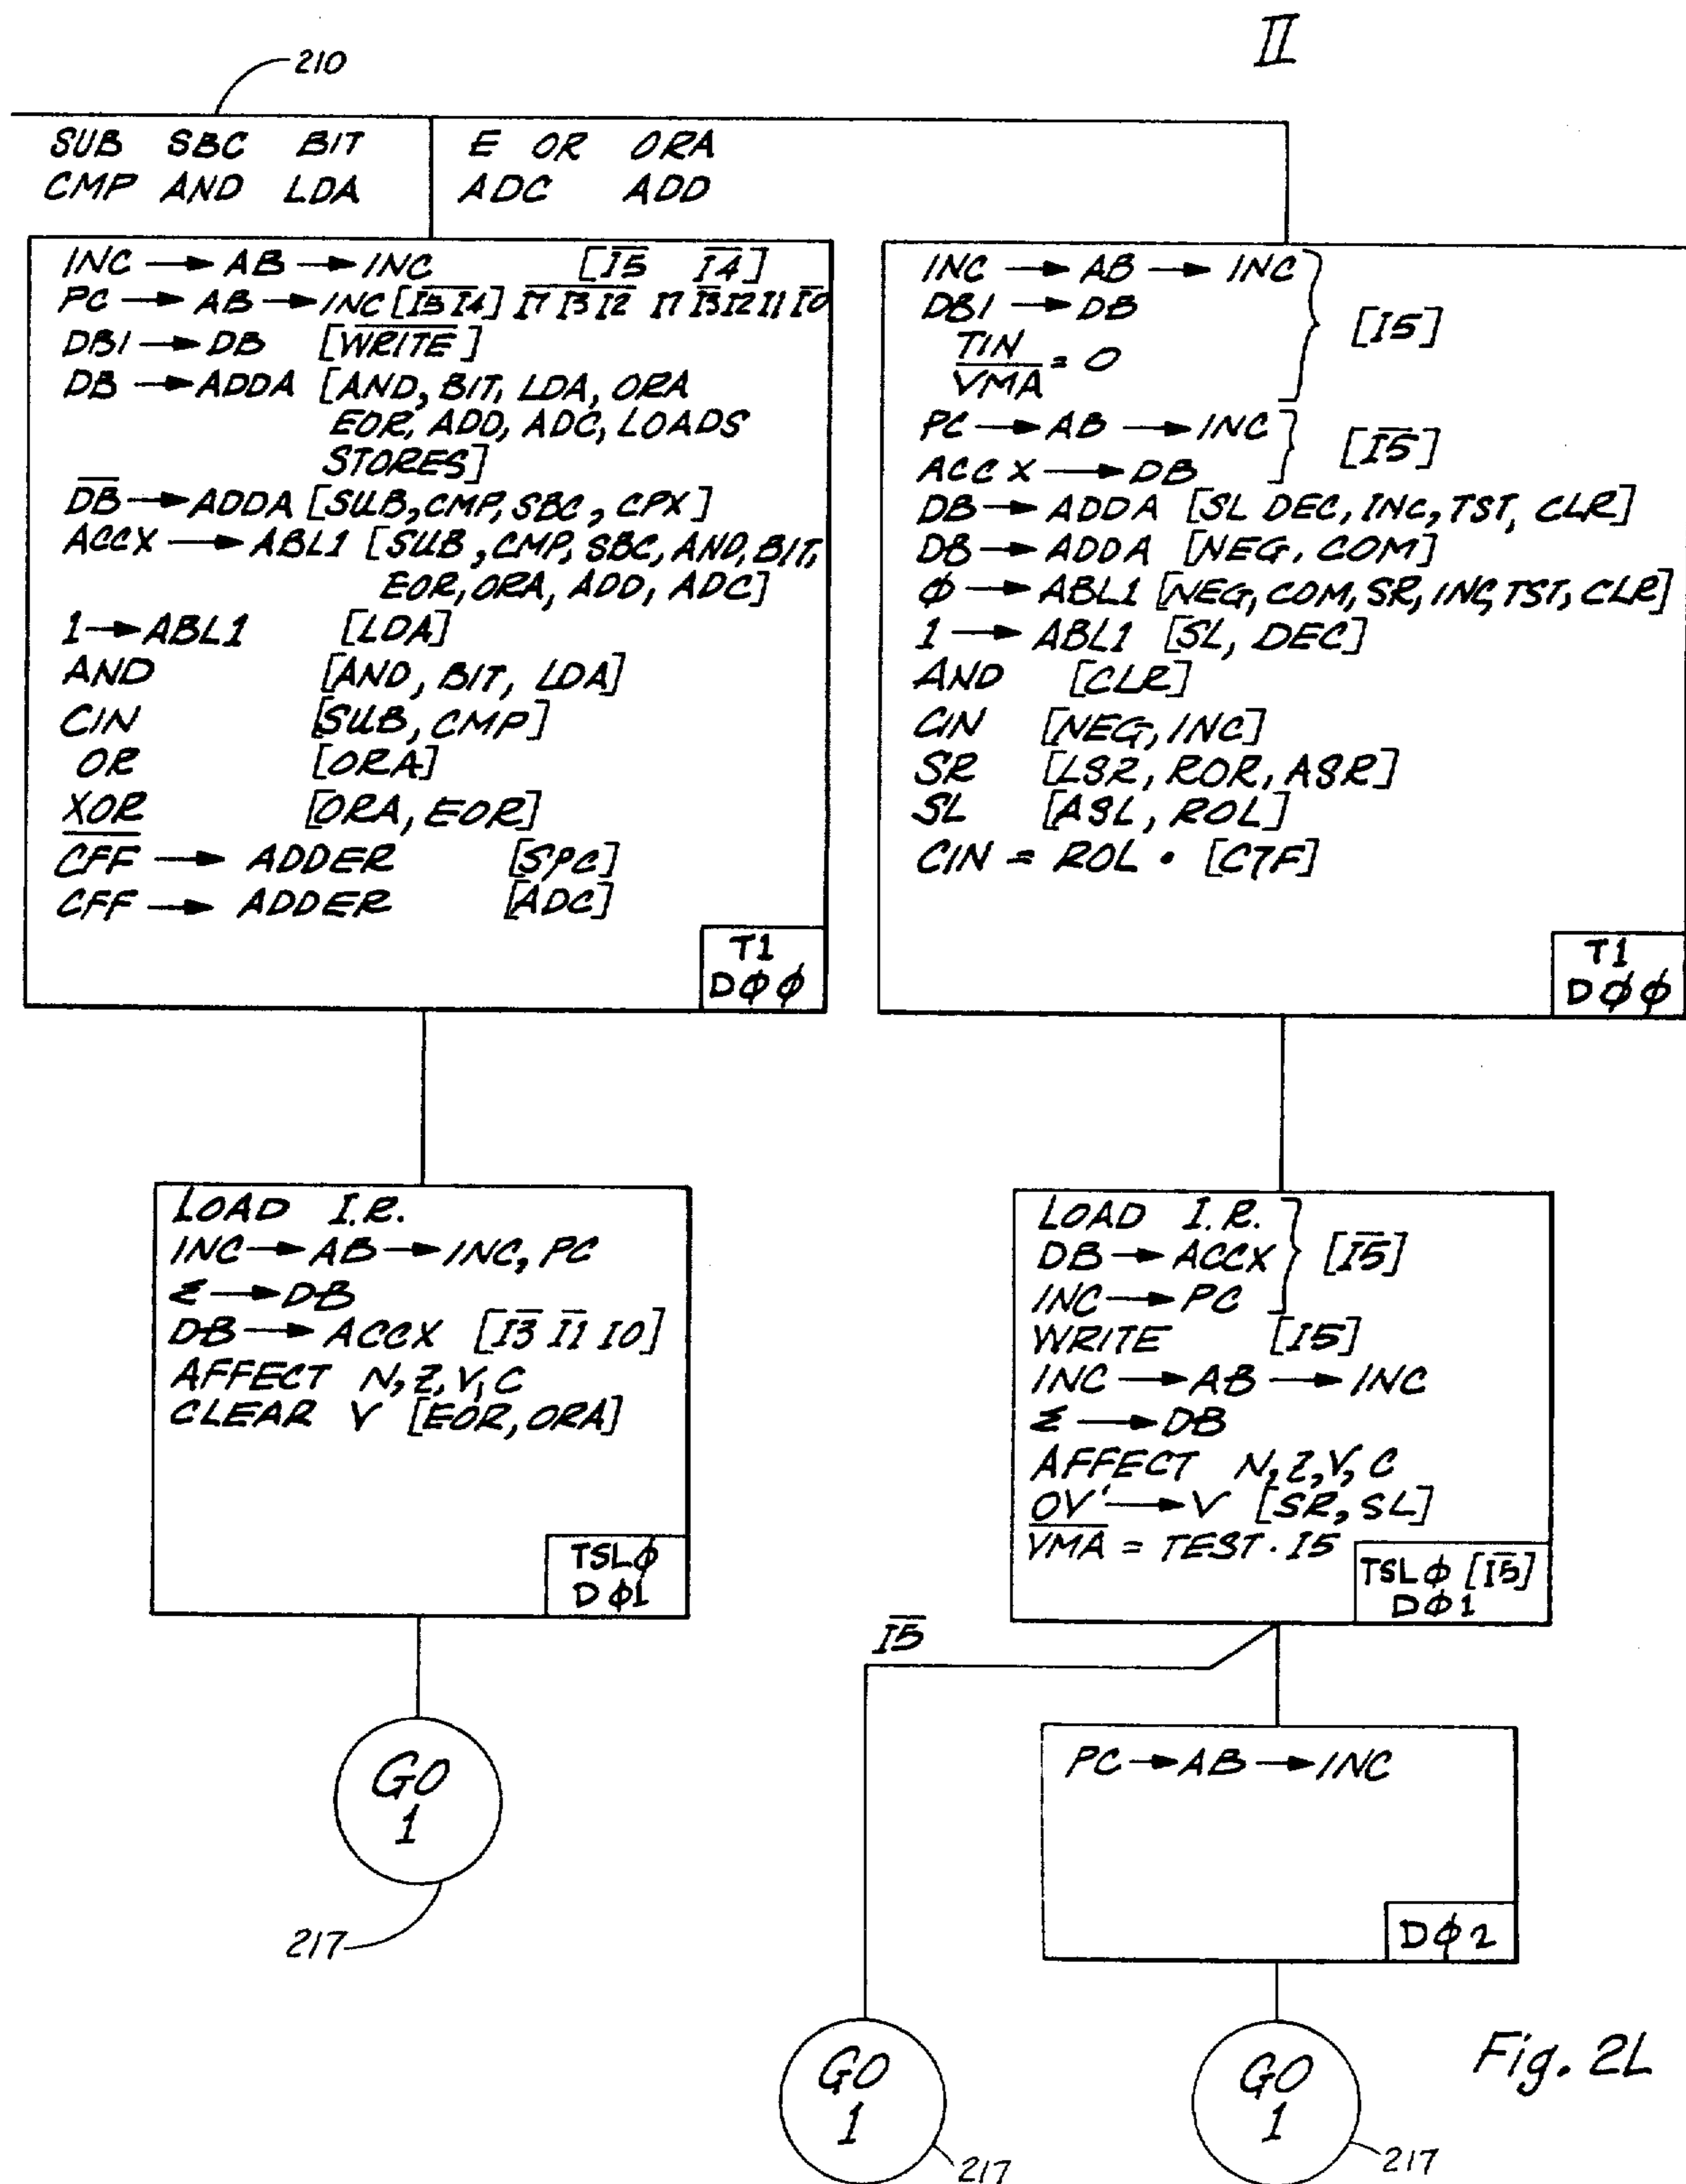 II
210
SUB SBC BIT
CMP AND LDA
E OR ORA
ADC ADD
INC → AB → INC [I̅5̅ I̅4̅]
PC → AB → INC [I̅5̅ I̅4̅] I7 I̅3̅ I̅2̅ I7 I̅3̅ I2 I1 I̅0̅
DBI → DB [W̅R̅I̅T̅E̅]
DB → ADDA [AND, BIT, LDA, ORA
EOR, ADD, ADC, LOADS
STORES]
D̅B̅ → ADDA [SUB, CMP, SBC, CPX]
ACCX → ABL1 [SUB, CMP, SBC, AND, BIT,
EOR, ORA, ADD, ADC]
1 → ABL1 [LDA]
AND [AND, BIT, LDA]
CIN [SUB, CMP]
OR [ORA]
XOR [ORA, EOR]
C̅F̅F̅ → ADDER [SPC]
CFF → ADDER [ADC]
T1
DØØ
INC → AB → INC
DBI → DB
TIN
V̅M̅A̅ = 0
[I5]
PC → AB → INC
ACCX → DB
[I̅5̅]
DB → ADDA [SL DEC, INC, TST, CLR]
DB → ADDA [NEG, COM]
Ø → ABL1 [NEG, COM, SR, INC, TST, CLR]
1 → ABL1 [SL, DEC]
AND [CLR]
CIN [NEG, INC]
SR [LSR, ROR, ASR]
SL [ASL, ROL]
CIN = ROL • [C7F]
T1
DØØ
LOAD I.R.
INC → AB → INC, PC
Σ → DB
DB → ACCX [I̅3̅ I̅1̅ I0]
AFFECT N, Z, V, C
CLEAR V [EOR, ORA]
TSLØ
DØ1
GO
1
217
LOAD I.R.
DB → ACCX [I̅5̅]
INC → PC
WRITE [I5]
INC → AB → INC
Σ → DB
AFFECT N, Z, V, C
OV' → V [SR, SL]
V̅M̅A̅ = TEST · I5
TSLØ [I̅5̅]
DØ1
I̅5̅
PC → AB → INC
DØ2
GO
1
217
GO
1
217
Fig. 2L